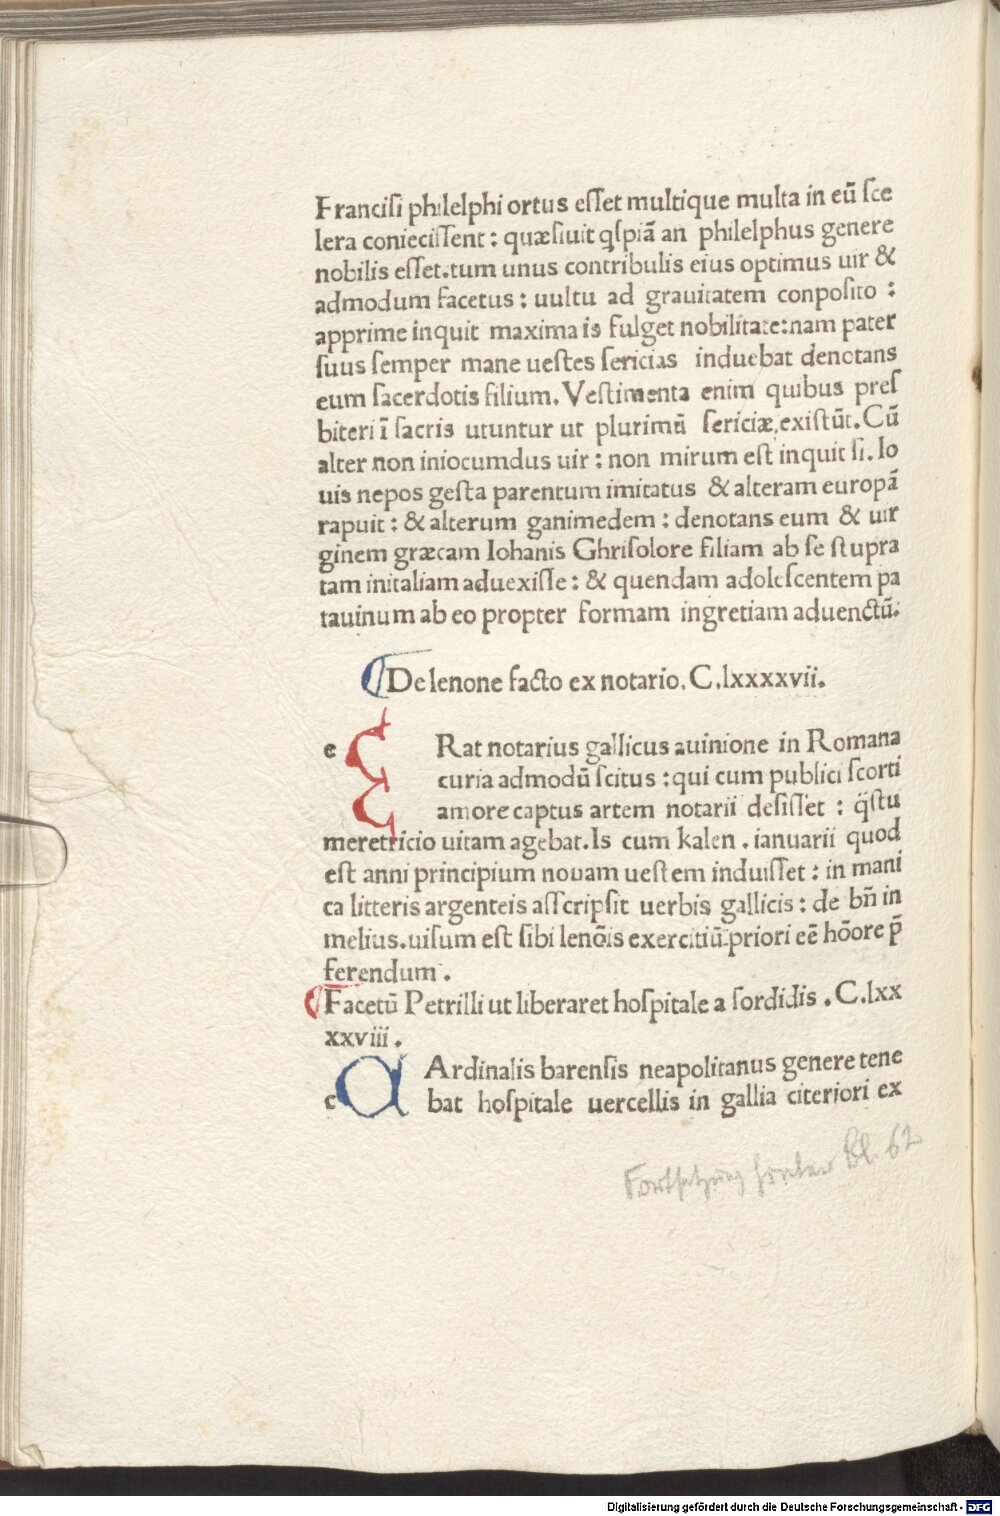 Francisi philelphi ortus eſſet multique multa in eū ſce
lera conieciſſent : quæſiuit qſpiā an philelphus genere
nobilis eſſet.tum unus contribulis eius optimus uir &
admodum facetus : uultu ad grauitatem conpoſito :
apprime inquit maxima is fulget nobilitate:nam pater
ſuus ſemper mane ueſtes ſericias induebat denotans
eum ſacerdotis filium. Veſtimenta enim quibus preſ
biteri ī ſacris utuntur ut plurimū ſericiæ,exiſtūt. Cū
alter non iniocumdus uir : non mirum eſt inquit ſi. Io
uis nepos geſta parentum imitatus & alteram europā
rapuit : & alterum ganimedem : denotans eum & uir
ginem græcam Iohanis Ghriſolore filiam ab ſe ſtupra
tam initaliam aduexiſſe : & quendam adoleſcentem pa
tauinum ab eo propter formam ingretiam aduenctū.
De lenone facto ex notario. C.lxxxxvii.
e E Rat notarius gallicus auinione in Romana
curia admodū ſcitus : qui cum publici ſcorti
amore captus artem notarii deſiſſet : q̈ſtu
meretricio uitam agebat. Is cum kalen . ianuarii quod
eſt anni principium nouam ueſtem induiſſet : in mani
ca litteris argenteis aſſcripſit uerbis gallicis : de bn̄ in
melius.uiſum eſt ſibi lenōis exercitiū priori eē hōore p̄
ferendum .
Facetū Petrilli ut liberaret hoſpitale a ſordidis . C.lxx
xxviii .
c C Ardinalis barenſis neapolitanus genere tene
bat hoſpitale uercellis in gallia citeriori ex
Fortsetzung hinter Bl. 62
Digitalisierung gefördert durch die Deutsche Forschungsgemeinschaft - DFG